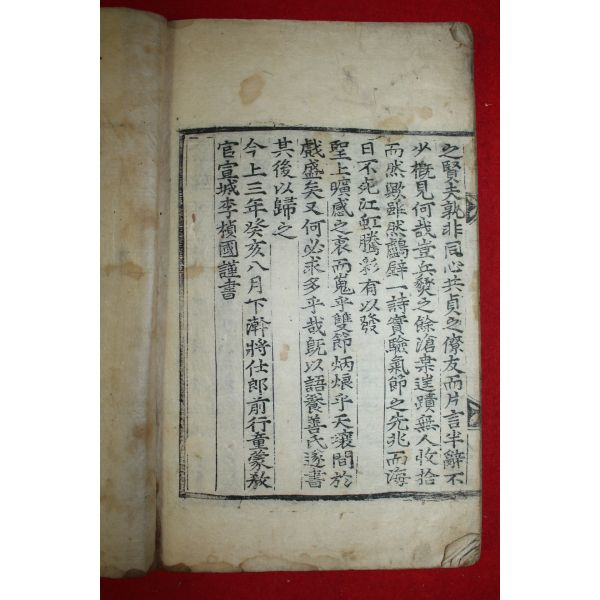 之賢夫孰非同心共貞之僚友而片言半辭不
少槪見何哉豈兵燹之餘滄桒迷蹟無人收拾
而然歟雖然鸕壁一詩實驗氣節之先兆而海
日不死江虹騰彩有以發
聖上曠感之衷而嵬乎雙節炳烺乎天壤間於
戱盛矣又何必求多乎哉旣以語養善氏遂書
其後以歸之
今上三年癸亥八月下澣將仕郎前行童蒙敎
官宣城李楨國謹書